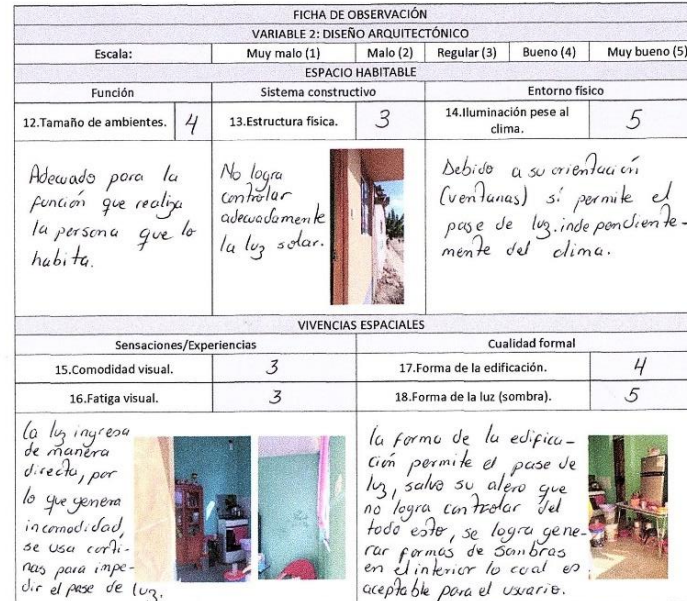 FICHA DE OBSERVACIÓN
VARIABLE 2: DISEÑO ARQUITECTÓNICO
Escala: Muy malo (1) Malo (2) Regular (3) Bueno (4) Muy bueno (5)
ESPACIO HABITABLE
Función Sistema constructivo Entorno físico
12.Tamaño de ambientes. 4 13.Estructura física. 3 14.Iluminación pese al clima. 5
Adecuado para la
función que realiza
la persona que lo
habita.
No logra
controlar
adecuadamente
la luz solar.
Debido a su orientación
(ventanas) sí permite el
pase de luz. independiente-
mente del clima.
VIVENCIAS ESPACIALES
Sensaciones/Experiencias Cualidad formal
15.Comodidad visual. 3 17.Forma de la edificación. 4
16.Fatiga visual. 3 18.Forma de la luz (sombra). 5
la luz ingresa
de manera
directa, por
lo que genera
incomodidad,
se usa corti-
nas para impe-
dir el pase de luz.
la forma de la edifica-
ción permite el pase de
luz, salvo su alero que
no logra controlar del
todo esto, se logra gene-
rar formas de sombras
en el interior lo cual es
aceptable para el usuario.